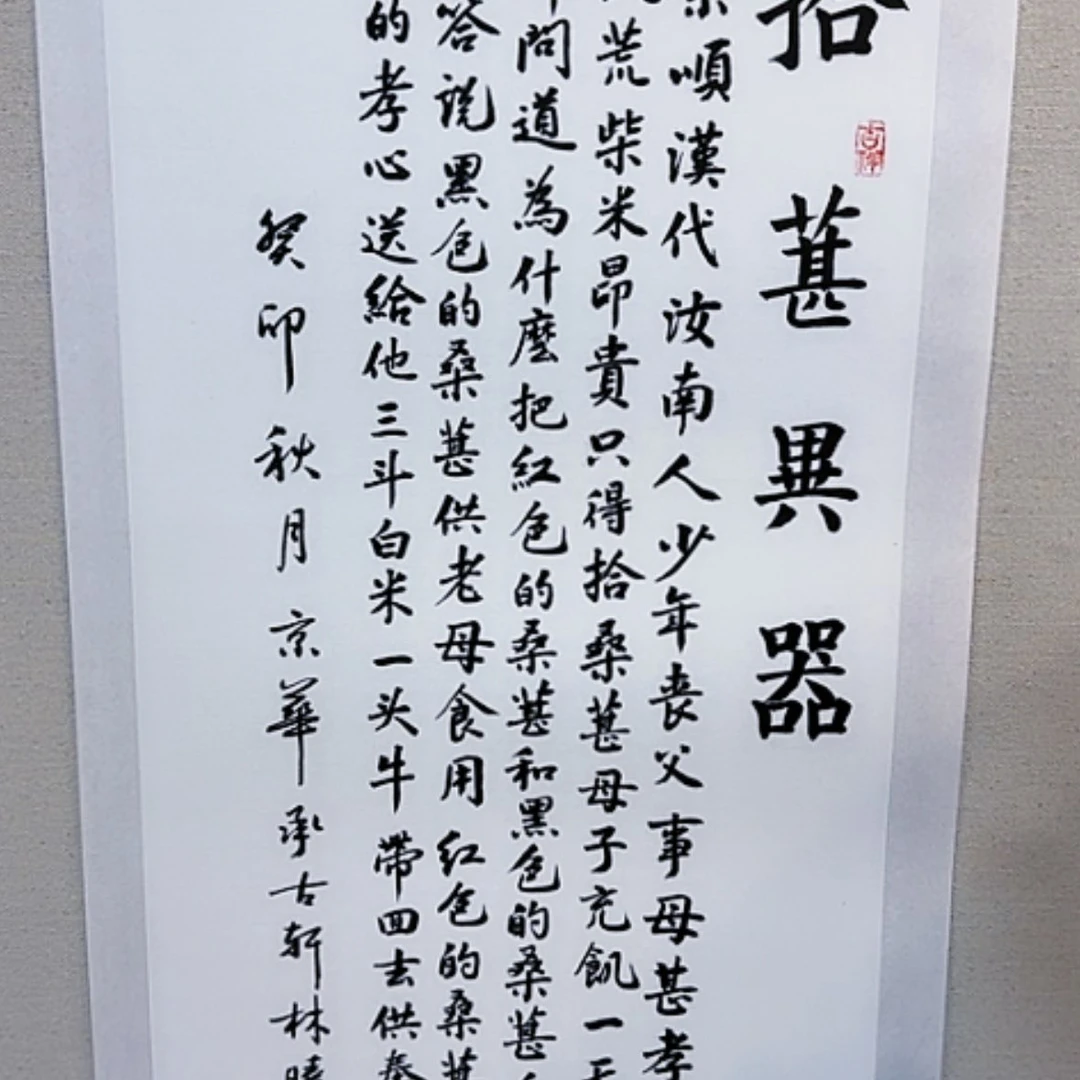 拾葚異器
順漢代汝南人少年喪父事母甚孝
荒柴米昂貴只得拾桑葚母子充飢一天
問道為什麼把紅色的桑葚和黑色的桑葚
答説黑色的桑葚供老母食用红色的桑葚
的孝心送給他三斗白米一头牛帶回去供奉
癸卯秋月京華承古轩林